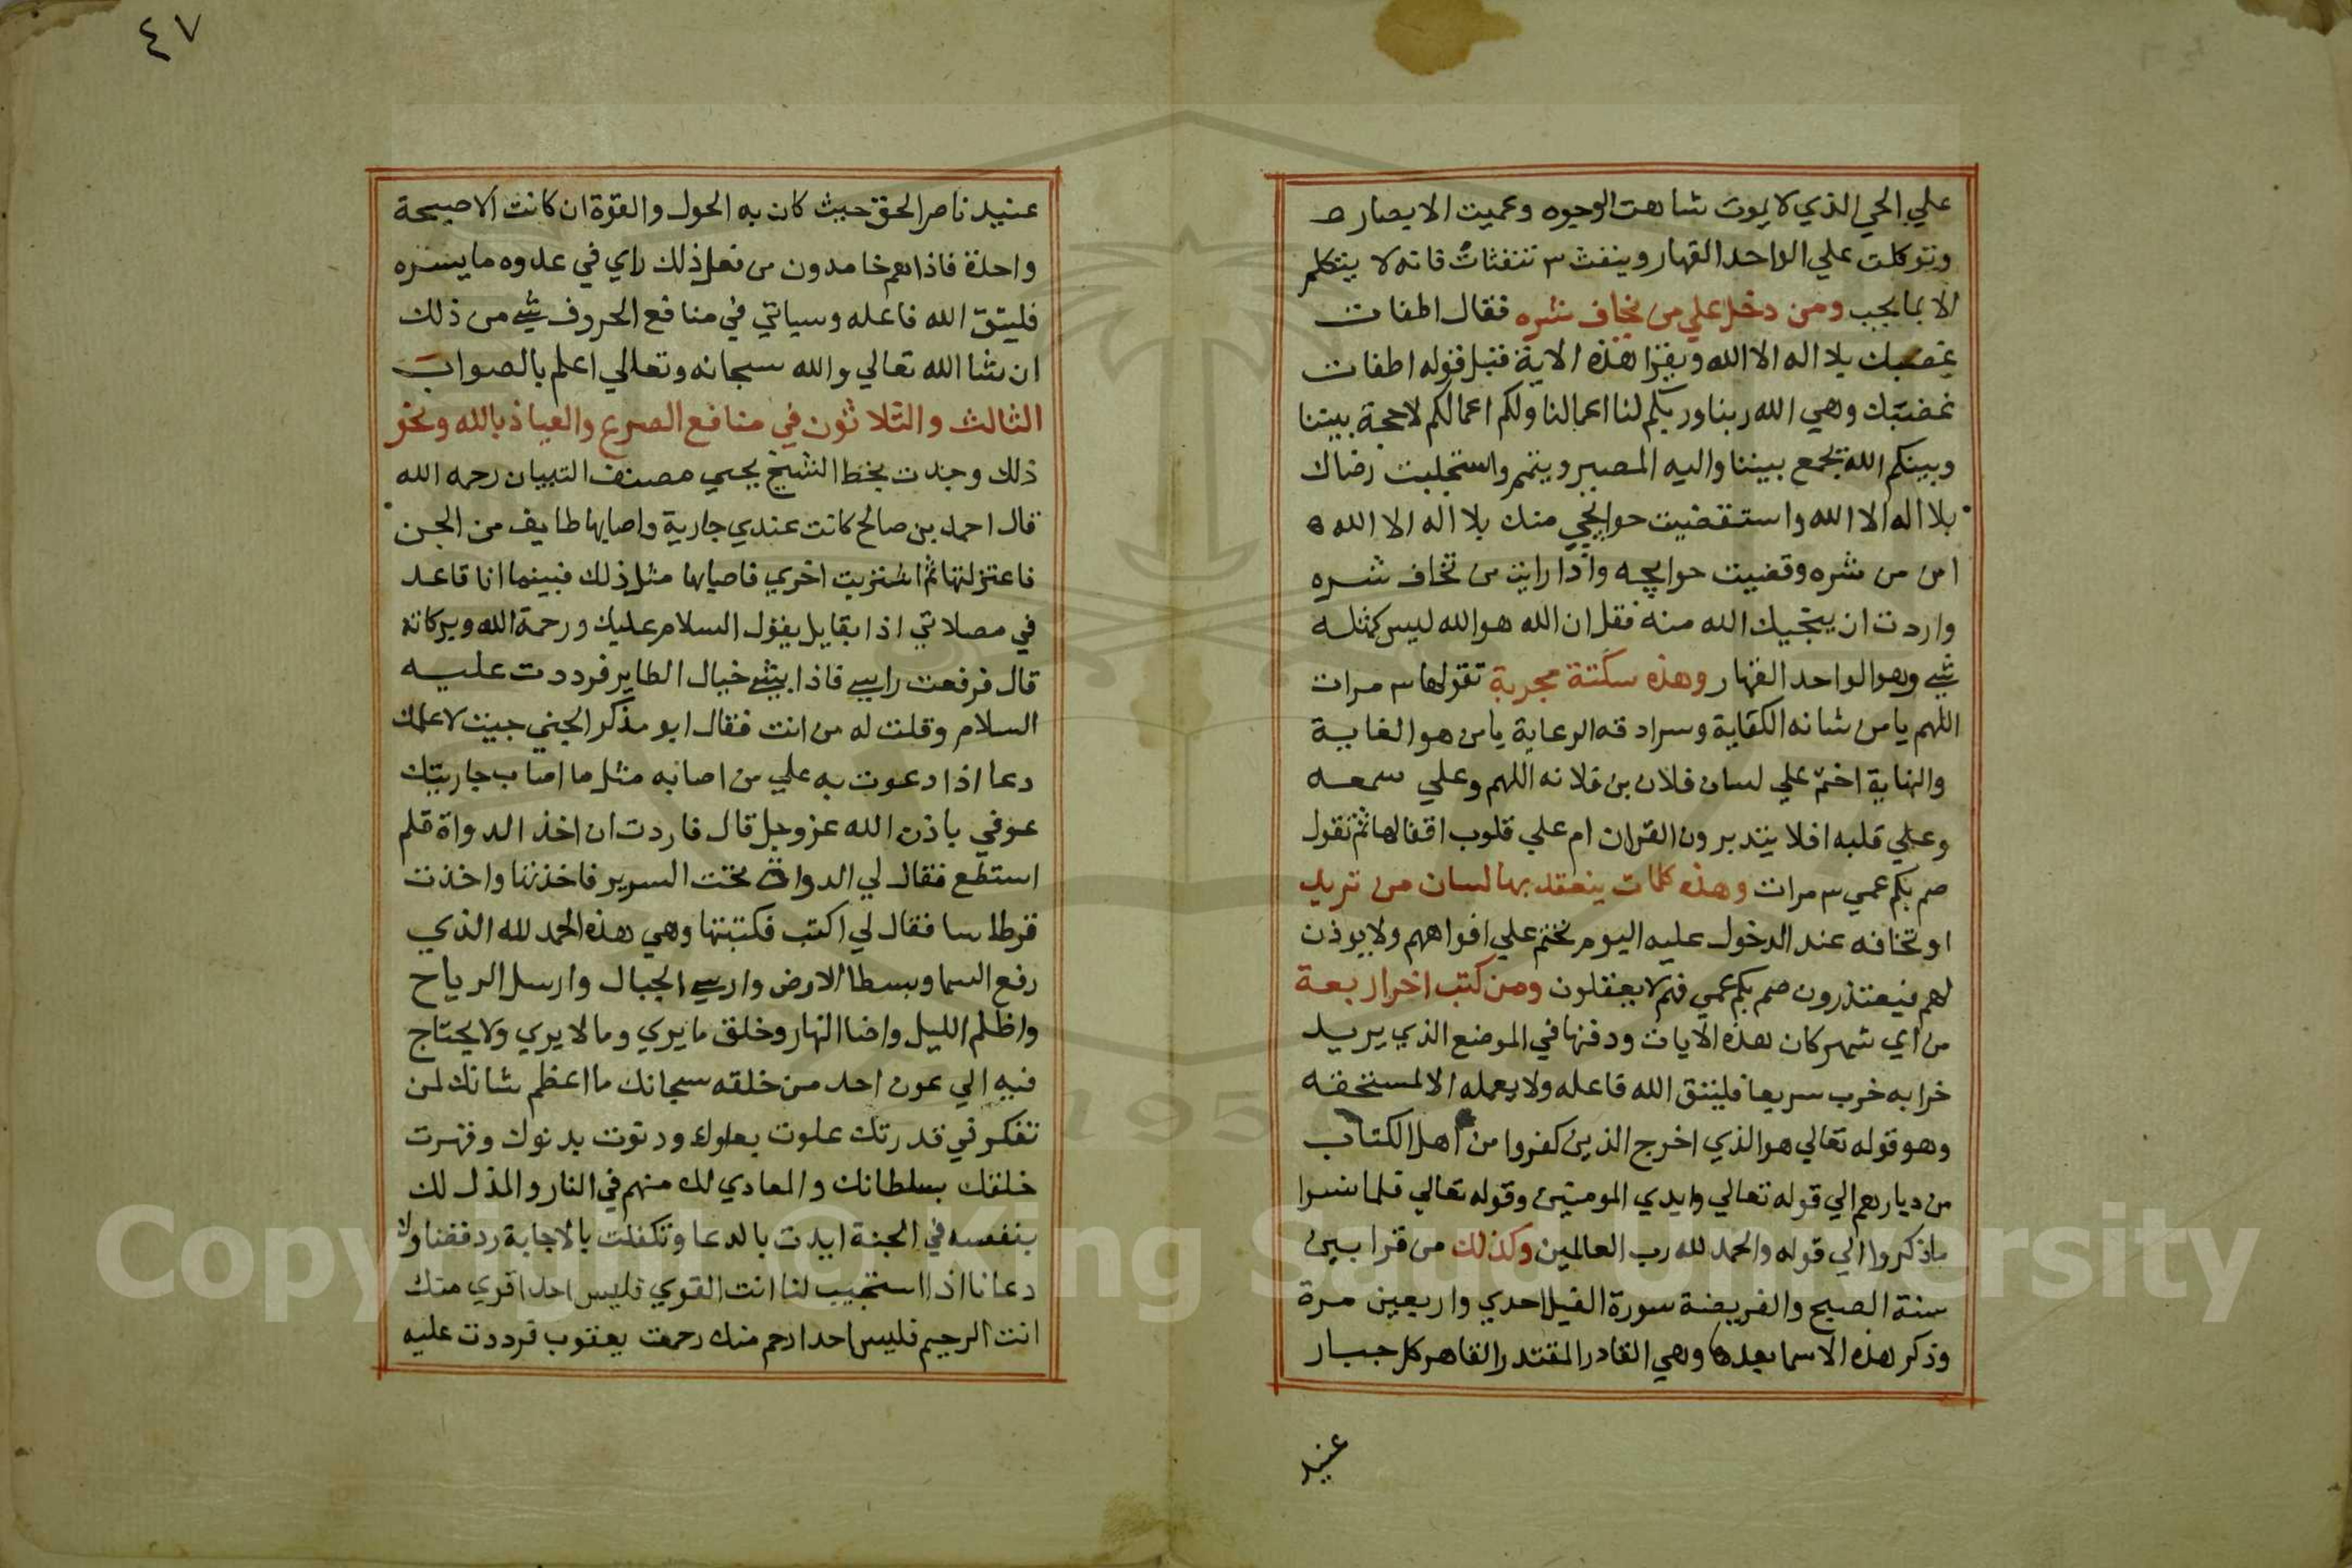 علي الحي الذي لا يموت شاهت الوجوه وعميت الابصار ط
وتوكلت علي الواحد القهار وينفث ٣ تنفثات فانه لا يتكلم
الا بما يجب ومن دخل علي من يخاف شره فقال اطفات
غضبك بلا اله الا الله ويقرا هذه الاية قبل قوله اطفات
غضبك وهي الله ربنا وربكم لنا اعمالنا ولكم اعمالكم لا حجة بيننا
وبينكم الله يجمع بيننا واليه المصير ويتمم واستجلبت رضاك
بلا اله الا الله واستقضيت حوايجي منك بلا اله الا الله ه
امن من شره وقضيت حوايجه واذا رايت من تخاف شره
واردت ان ينجيك الله منه فقل ان الله هو الله ليس كمثله
شي وهو الواحد القهار وهذه سكتة مجربة تقولها ٣ مرات
اللهم يا من شانه الكفاية وسرادقه الرعاية يا من هو الغاية
والنهاية اختم علي لسان فلان بن فلانه اللهم وعلي سمعه
وعلي قلبه افلا يتدبرون القران ام علي قلوب اقفالها ثم تقول
صم بكم عمي ٣ مرات وهذه كلمات ينعقد بها لسان من تريد
او تخافه عند الدخول عليه اليوم نختم علي افواههم ولا يوذن
لهم فيعتذرون صم بكم عمي فهم لا يعقلون ومن كتب اخر اربعة
من اي شهر كان هذه الايات ودفنها في الموضع الذي يريد
خرابه خرب سريعا فليتق الله فاعله ولا يعمله الا لمستحقه
وهو قوله تعالي هو الذي اخرج الذين كفروا من اهل الكتاب
من ديارهم الي قوله تعالي وايدي المومنين وقوله تعالي فلما نسوا
ما ذكروا الي قوله والحمد لله رب العالمين وكذلك من قرا بين
سنة الصبح والفريضة سورة الفيل احدي واربعين مرة
وذكر هذه الاسما بعدها وهي القادر المقتدر القاهر كل جبار
عنيد
٤٧
عنيد ناصر الحق حيث كان به الحول والقوة ان كانت الا صيحة
واحدة فاذا هم خامدون من فعل ذلك راي في عدوه ما يسره
فليتق الله فاعله وسياتي في منافع الحروف شي من ذلك
ان شا الله تعالي والله سبحانه وتعالي اعلم بالصواب
الثالث والثلاثون في منافع الصرع والعياذ بالله ونحو
ذلك وجدت بخط الشيخ يحيي مصنف التبيان رحمه الله
قال احمد بن صالح كانت عندي جارية واصابها طايف من الجن
فاعتزلتها ثم اشتريت اخري فاصابها مثل ذلك فبينما انا قاعد
في مصلاتي اذا بقايل يقول السلام عليك ورحمة الله وبركاته
قال فرفعت راسي فاذا بشي خيال الطاير فرددت عليه
السلام وقلت له من انت فقال ابو مذكر الجني جيت لاعلمك
دعا اذا دعوت به علي من اصابه مثل ما اصاب جاريتك
عوفي باذن الله عز وجل قال فاردت ان اخذ الدواة فلم
استطع فقال لي الدواة تحت السرير فاخذتها واخذت
قرطاسا فقال لي اكتب فكتبتها وهي هذه الحمد لله الذي
رفع السما وبسط الارض وارسي الجبال وارسل الرياح
واظلم الليل واضا النهار وخلق ما يري وما لا يري ولا يحتاج
فيه الي عون احد من خلقه سبحانك ما اعظم شانك لمن
تفكر في قدرتك علوت بعلوك ودنوت بدنوك وقهرت
خلقك بسلطانك والمعادي لك منهم في النار والمذل لك
بنفسه في الجنة ايدت بالدعا وتكفلت بالاجابة
دعانا اذا استجيب لنا انت القوي فليس احد اقوي منك
انت الرحيم فليس احد ارحم منك رحمت يعقوب فرددت عليه
Copyright © King Saud University
1957